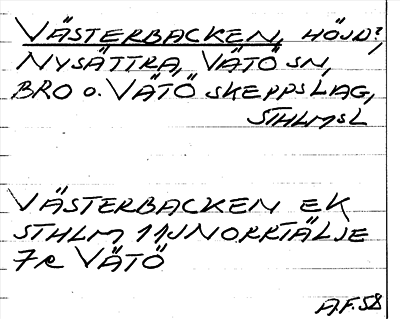 VÄSTERBACKEN, HÖJD?,
NYSÄTTRA, VÄTÖ SN,
BRO o. VÄTÖ SKEPPSLAG,
STHLMSL
VÄSTERBACKEN EK
STHLM 11J NORRTÄLJE
7e VÄTÖ
A.F. 58